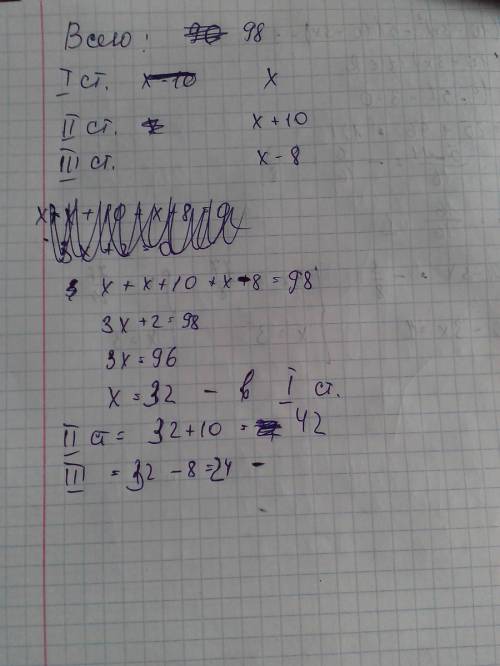 Всего: 98
I ст. x
II ст. x + 10
III ст. x - 8
x + x + 10 + x - 8 = 98
3x + 2 = 98
3x = 96
x = 32 - в I ст.
II ст = 32 + 10 = 42
III = 32 - 8 = 24 -